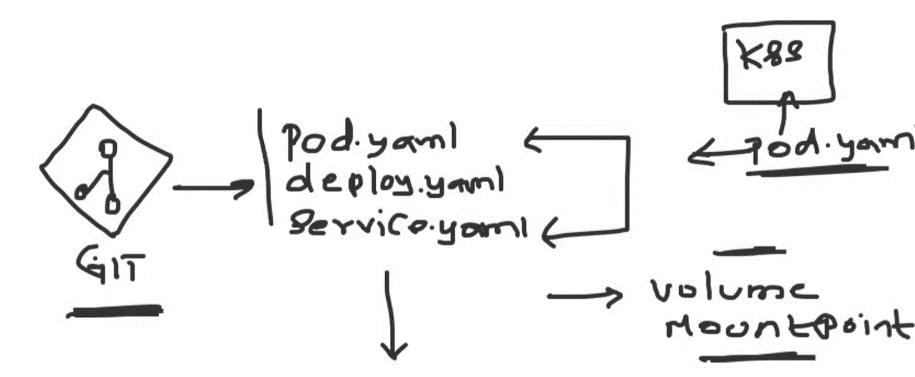 K8S
Pod.yaml
deploy.yaml
Service.yaml
pod.yam
GIT
Volume
Mountpoint